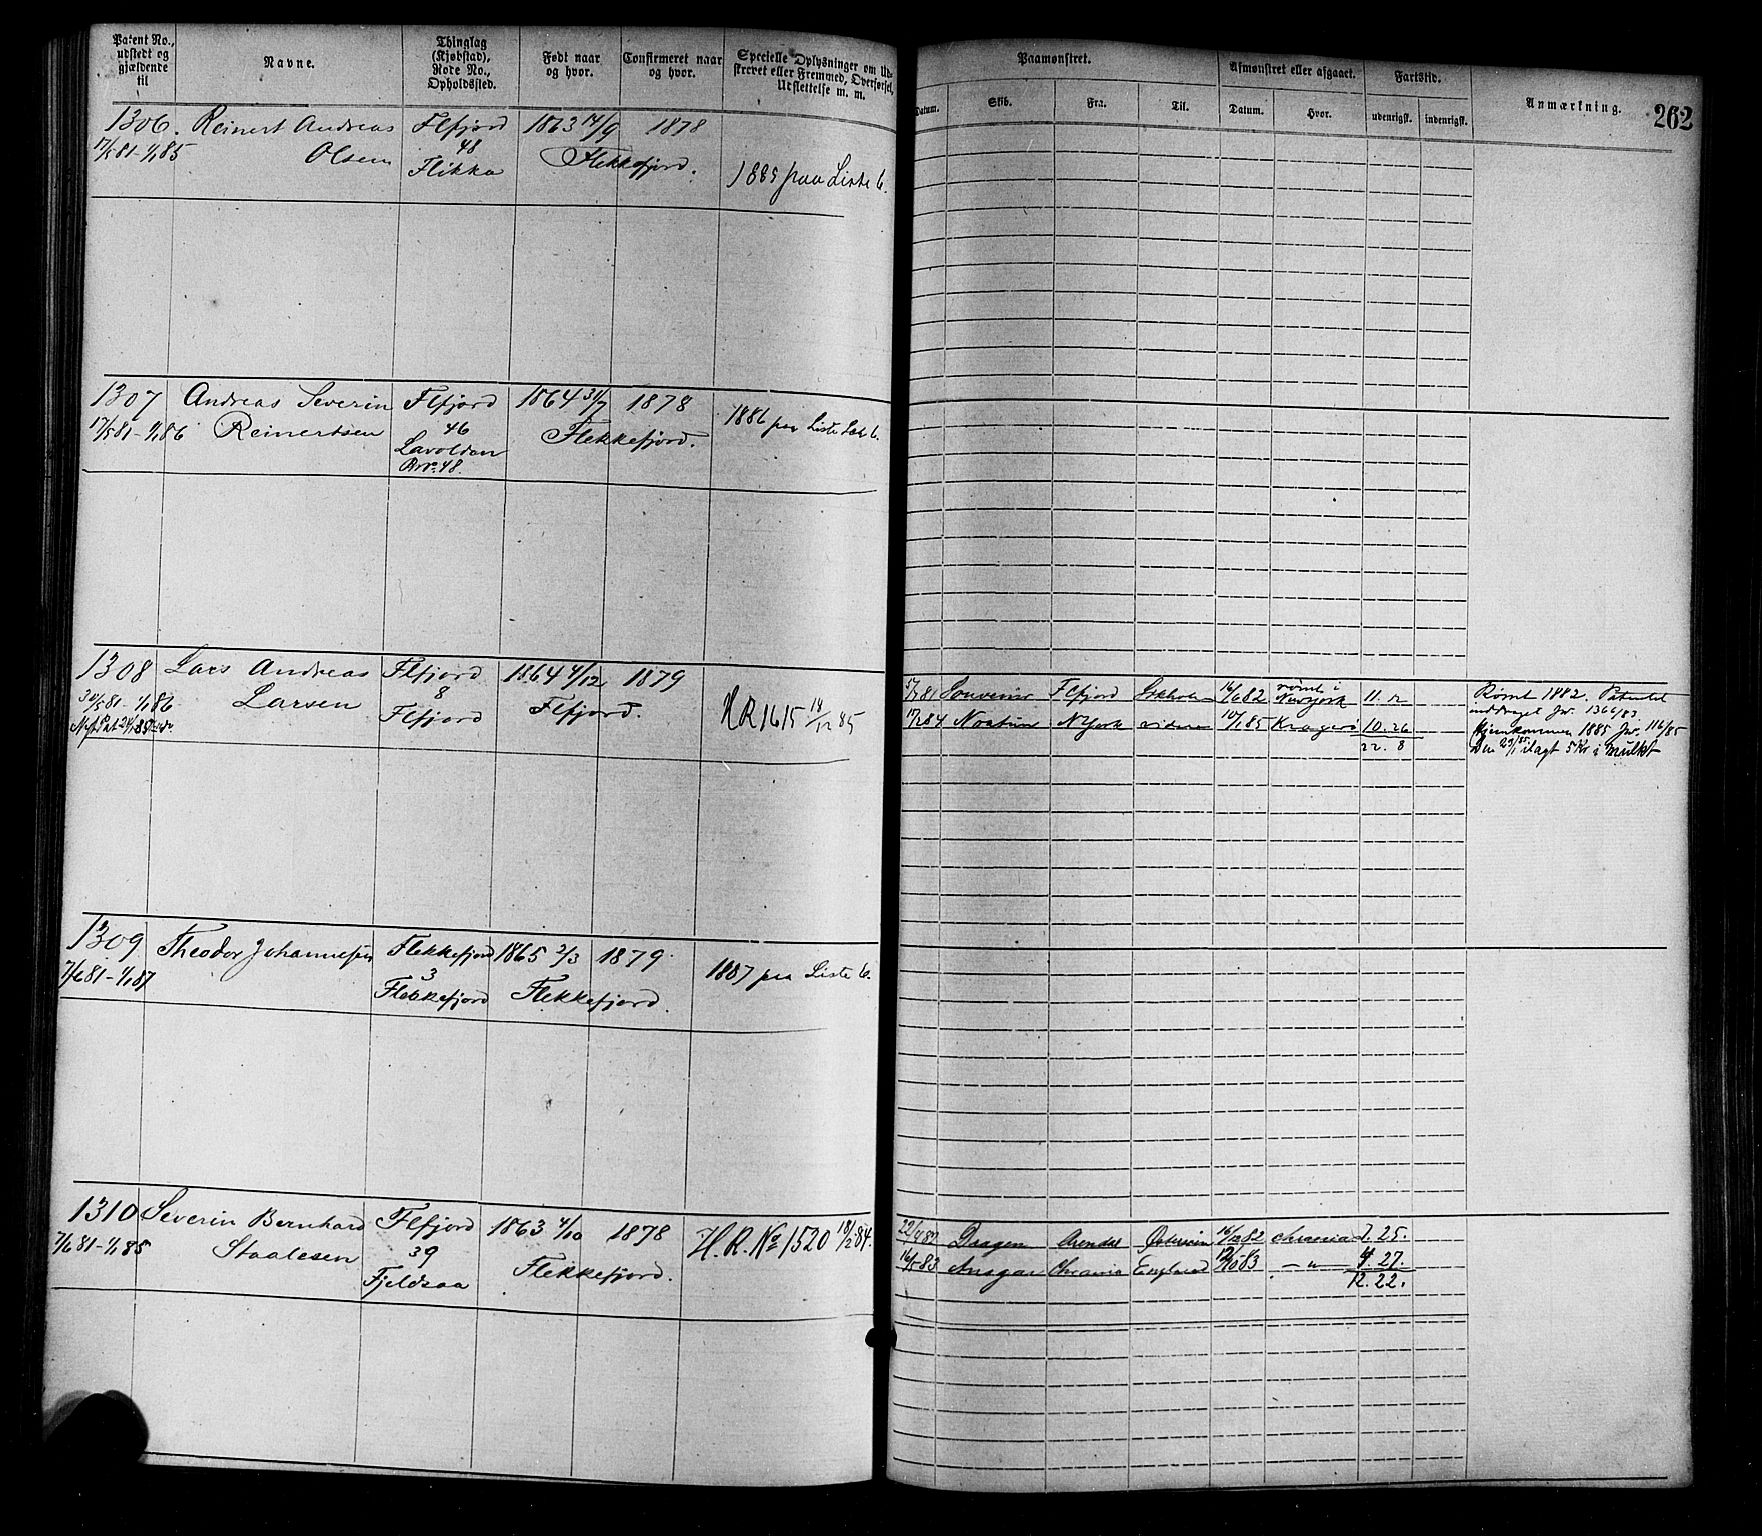 Patent No., udstedt og gjældende til
Navne.
Thinglag (Kjøbstad), Rode No., Opholdssted.
Født naar og hvor.
Confirmeret naar og hvor.
Specielle Oplysninger om Udskrevet eller Fremmed, Overførsel, Udslettelse m. m.
Paamønstret.
Datum.
Skib.
Fra.
Til.
Afmønstret eller afgaaet.
Datum.
Hvor.
Fartstid.
udenrigsk.
indenrigsk.
Anmærkning.
262
1306. Reinert Andreas Flfjord 1863 14/9 1878
17/5 81-1/1 85 Olsen 48 Flekkefjord.
Flikka 1885 paa Liste C.
1307 Andreas Severin Flfjord 1864 31/7 1878
17/5 81-1/1 86 Reinertsen 46 Flekkefjord. 1886 paa Liste C.
Lavoldan
Rno. 48.
1308 Lars Andreas Flfjord 1864 4/12 1879
81 1/1 86 Larsen 8 Flfjord.
Flfjord HR 1615 18/12 85
5/7 81 Souvenir Flfjord 16/6 82 rømt i Newyork 11. 12 Rømt 1882.
17/2 84 N York 10/1 85 Kragerø 10. 26 inddraget Jr. 1366/83
22. 8 Hjemkommen 1885 Jr. 116/85
Den 29/1 85 ilagt 5 Kr i Mulkt
1309. Theodor Johannesen Flekkefjord 1865 2/3 1879.
7/6 81-1/1 87 3 Flekkefjord. 1887 paa Liste C.
Flekkefjord
1310 Severin Bernhard Flfjord 1863 4/10 1878 H.R. No 1520 18/2 84.
7/6 81-1/1 85 Staalesen 39 Flekkefjord.
Fjeldsaa
22/4 82 Dragen Arendal 16/12 82 Chrania 7. 25.
16/5 83 Ansgar Chrania England 12/10 83 — " 4. 27.
12. 22.